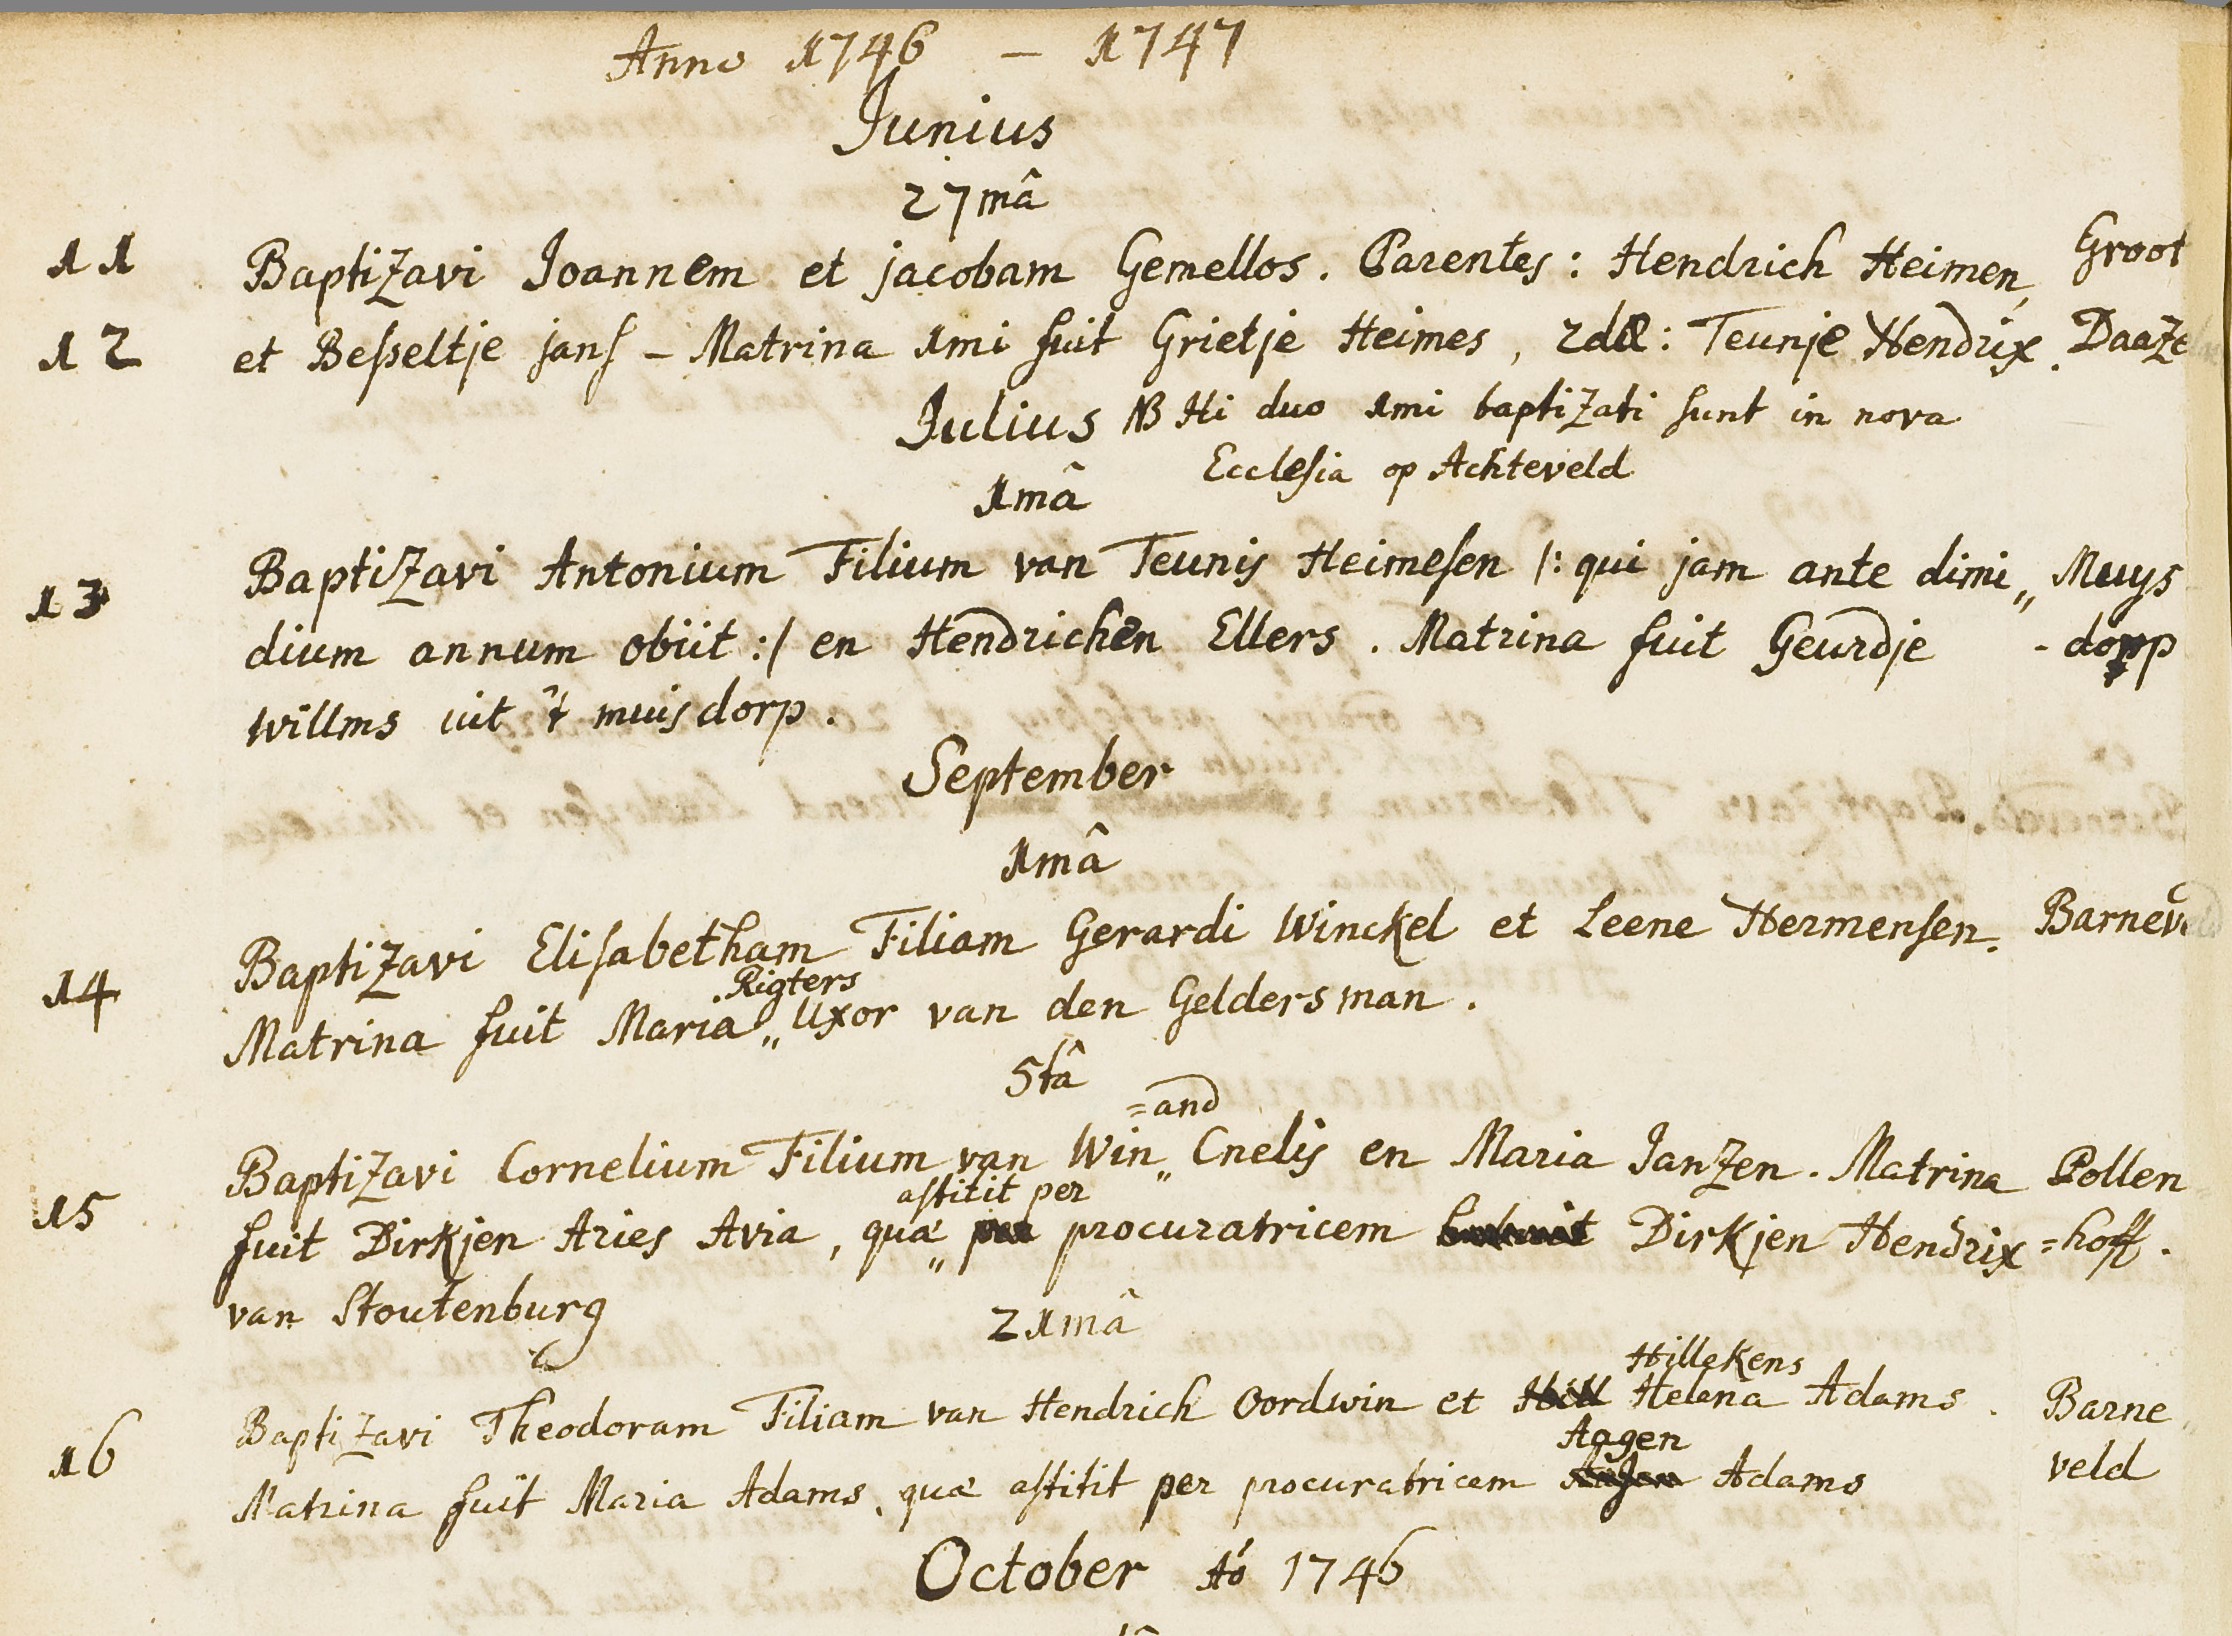 Anno 1746 – 1747
Junius
27mâ
11 Baptizavi Joannem et jacobam Gemellos. Parentes: Hendrich Heimen, Groot
12 et Besseltje jans – Matrina 1mi fuit Grietje Heimes, 2dæ: Teunje Hendrix. Daaze
Julius NB Hi duo 1mi baptizati sunt in nova
Ecclesia op Achteveld
1mâ
13 Baptizavi Antonium Filium van Teunis Heimesen /: qui jam ante dimi„ Muys
dium annum obiit :/ en Hendrichen Ellers. Matrina fuit Geurdje - dorp
willms uit 't muisdorp.
September
1mâ
14 Baptizavi Elisabetham Filiam Gerardi Winckel et Leene Hermensen. Barnev
Rigters
Matrina fuit Maria „ Uxor van den Geldersman.
5tâ
=and
15 Baptizavi Cornelium Filium van Win„ Cnelis en Maria Janzen. Matrina Pollen=
astitit per
fuit Dirkjen Aries Avia, quæ „ per procuratricem Dirkjen Hendrix =hoff.
van Stoutenburg
21mâ
Hillekens
16 Baptizavi Theodoram Filiam van Hendrich Oordwin et Hill Helena Adams. Barne„
Aagen
Matrina fuit Maria Adams, quæ astitit per procuratricem Adams veld
October Aó 1746